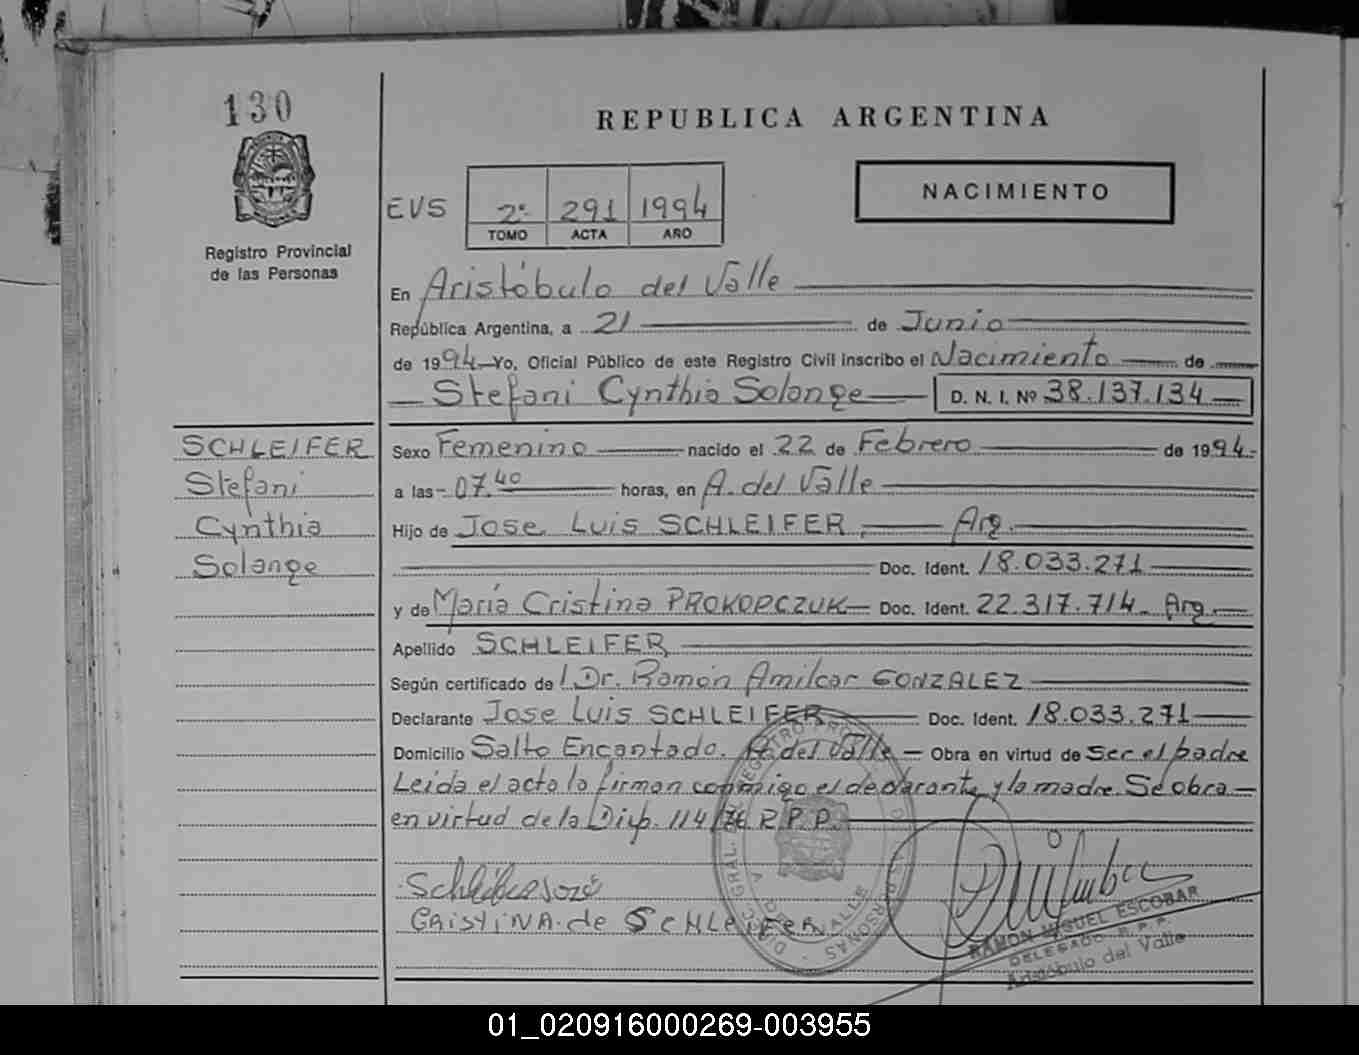 130
REPUBLICA ARGENTINA
NACIMIENTO
EVS 2º 291 1994
TOMO ACTA AÑO
Registro Provincial
de las Personas
En Aristóbulo del Valle
República Argentina, a 21 de Junio
de 1994 Yo, Oficial Público de este Registro Civil inscribo el Nacimiento de
Stefani Cynthia Solange D. N. I. Nº 38.137.134
SCHLEIFER
Stefani
Cynthia
Solange
Sexo Femenino nacido el 22 de Febrero de 1994
a las 07.40 horas, en A. del Valle
Hijo de Jose Luis SCHLEIFER, Arg.
Doc. Ident. 18.033.271
y de María Cristina PROKOPCZUK Doc. Ident. 22.317.714 Arg.
Apellido SCHLEIFER
Según certificado de Dr. Ramón Amilcar GONZALEZ
Declarante Jose Luis SCHLEIFER Doc. Ident. 18.033.271
Domicilio Salto Encantado. A. del Valle Obra en virtud de ser el padre
Leida el acta la firman conmigo el declarante y la madre. Se obra
en virtud de la Disp. 114/76 R.P.P.
Schleifer José
CRISTINA de SCHLEIFER
RAMON MIGUEL ESCOBAR
DELEGADO R.P.P.
Aristóbulo del Valle
01_020916000269-003955